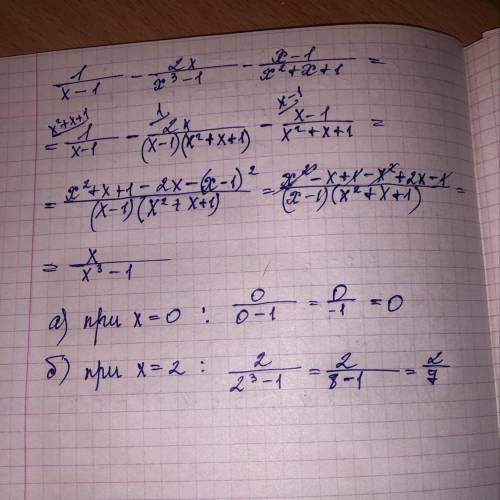 1/(x-1) - 2x/(x³-1) - (x-1)/(x²+x+1) =
= 1/(x-1) (x²+x+1) - 2x/((x-1)(x²+x+1)) (1) - (x-1)/(x²+x+1) (x-1) =
= (x²+x+1-2x-(x-1)²)/((x-1)(x²+x+1)) = (x²-x+1-x²+2x-1)/((x-1)(x²+x+1)) =
= x/(x³-1)
а) при x=0 : 0/(0-1) = 0/(-1) = 0
б) при x=2 : 2/(2³-1) = 2/(8-1) = 2/7